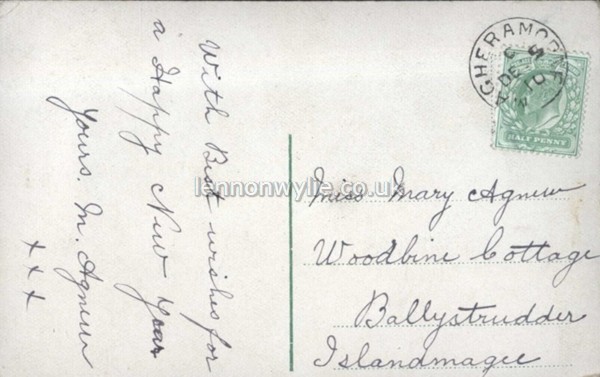 With Best wishes for
a Happy New Year
Yours. M. Agnew
x x x
MAGHERAMORNE
DE
10
HALF PENNY
Miss Mary Agnew
Woodbine Cottage
Ballystrudder
Islandmagee
lennonwylie.co.uk